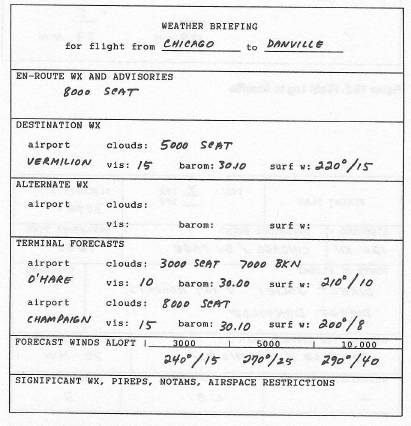 WEATHER BRIEFING
for flight from CHICAGO to DANVILLE
EN-ROUTE WX AND ADVISORIES
8000 SCAT
DESTINATION WX
airport clouds: 5000 SCAT
VERMILION vis: 15 barom: 30.10 surf w: 220°/15
ALTERNATE WX
airport clouds:
vis: barom: surf w:
TERMINAL FORECASTS
airport clouds: 3000 SCAT 7000 BKN
O'HARE vis: 10 barom: 30.00 surf w: 210°/10
airport clouds: 8000 SCAT
CHAMPAIGN vis: 15 barom: 30.10 surf w: 200°/8
FORECAST WINDS ALOFT | 3000 | 5000 | 10,000
240°/15 270°/25 290°/40
SIGNIFICANT WX, PIREPS, NOTAMS, AIRSPACE RESTRICTIONS